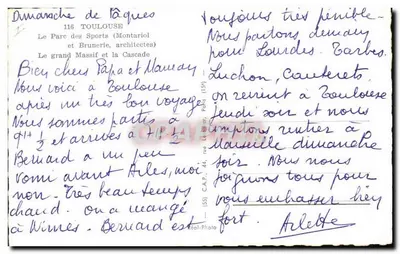 Dimanche de Pâques
116 TOULOUSE
Le Parc des Sports (Montariol
et Brunerie, architectes)
Le grand Massif et la Cascade
Bien chers Papa et Maman
Nous voici à Toulouse
après un très bon voyage
Nous sommes partis à
9H 1/2 et arrivés à 7H 1/2
Bernard a un peu
vomi avant Arles, moi
non. Très beau temps
chaud. On a mangé
à Nîmes. Bernard est
toujours très pénible.
Nous partons demain
pour Lourdes. Tarbes.
Luchon, Cauterets,
on revient à Toulouse
jeudi soir et nous
comptons rentrer à
Marseille dimanche
soir. Nous nous
joignons tous pour
vous embrasser bien
fort. Arlette